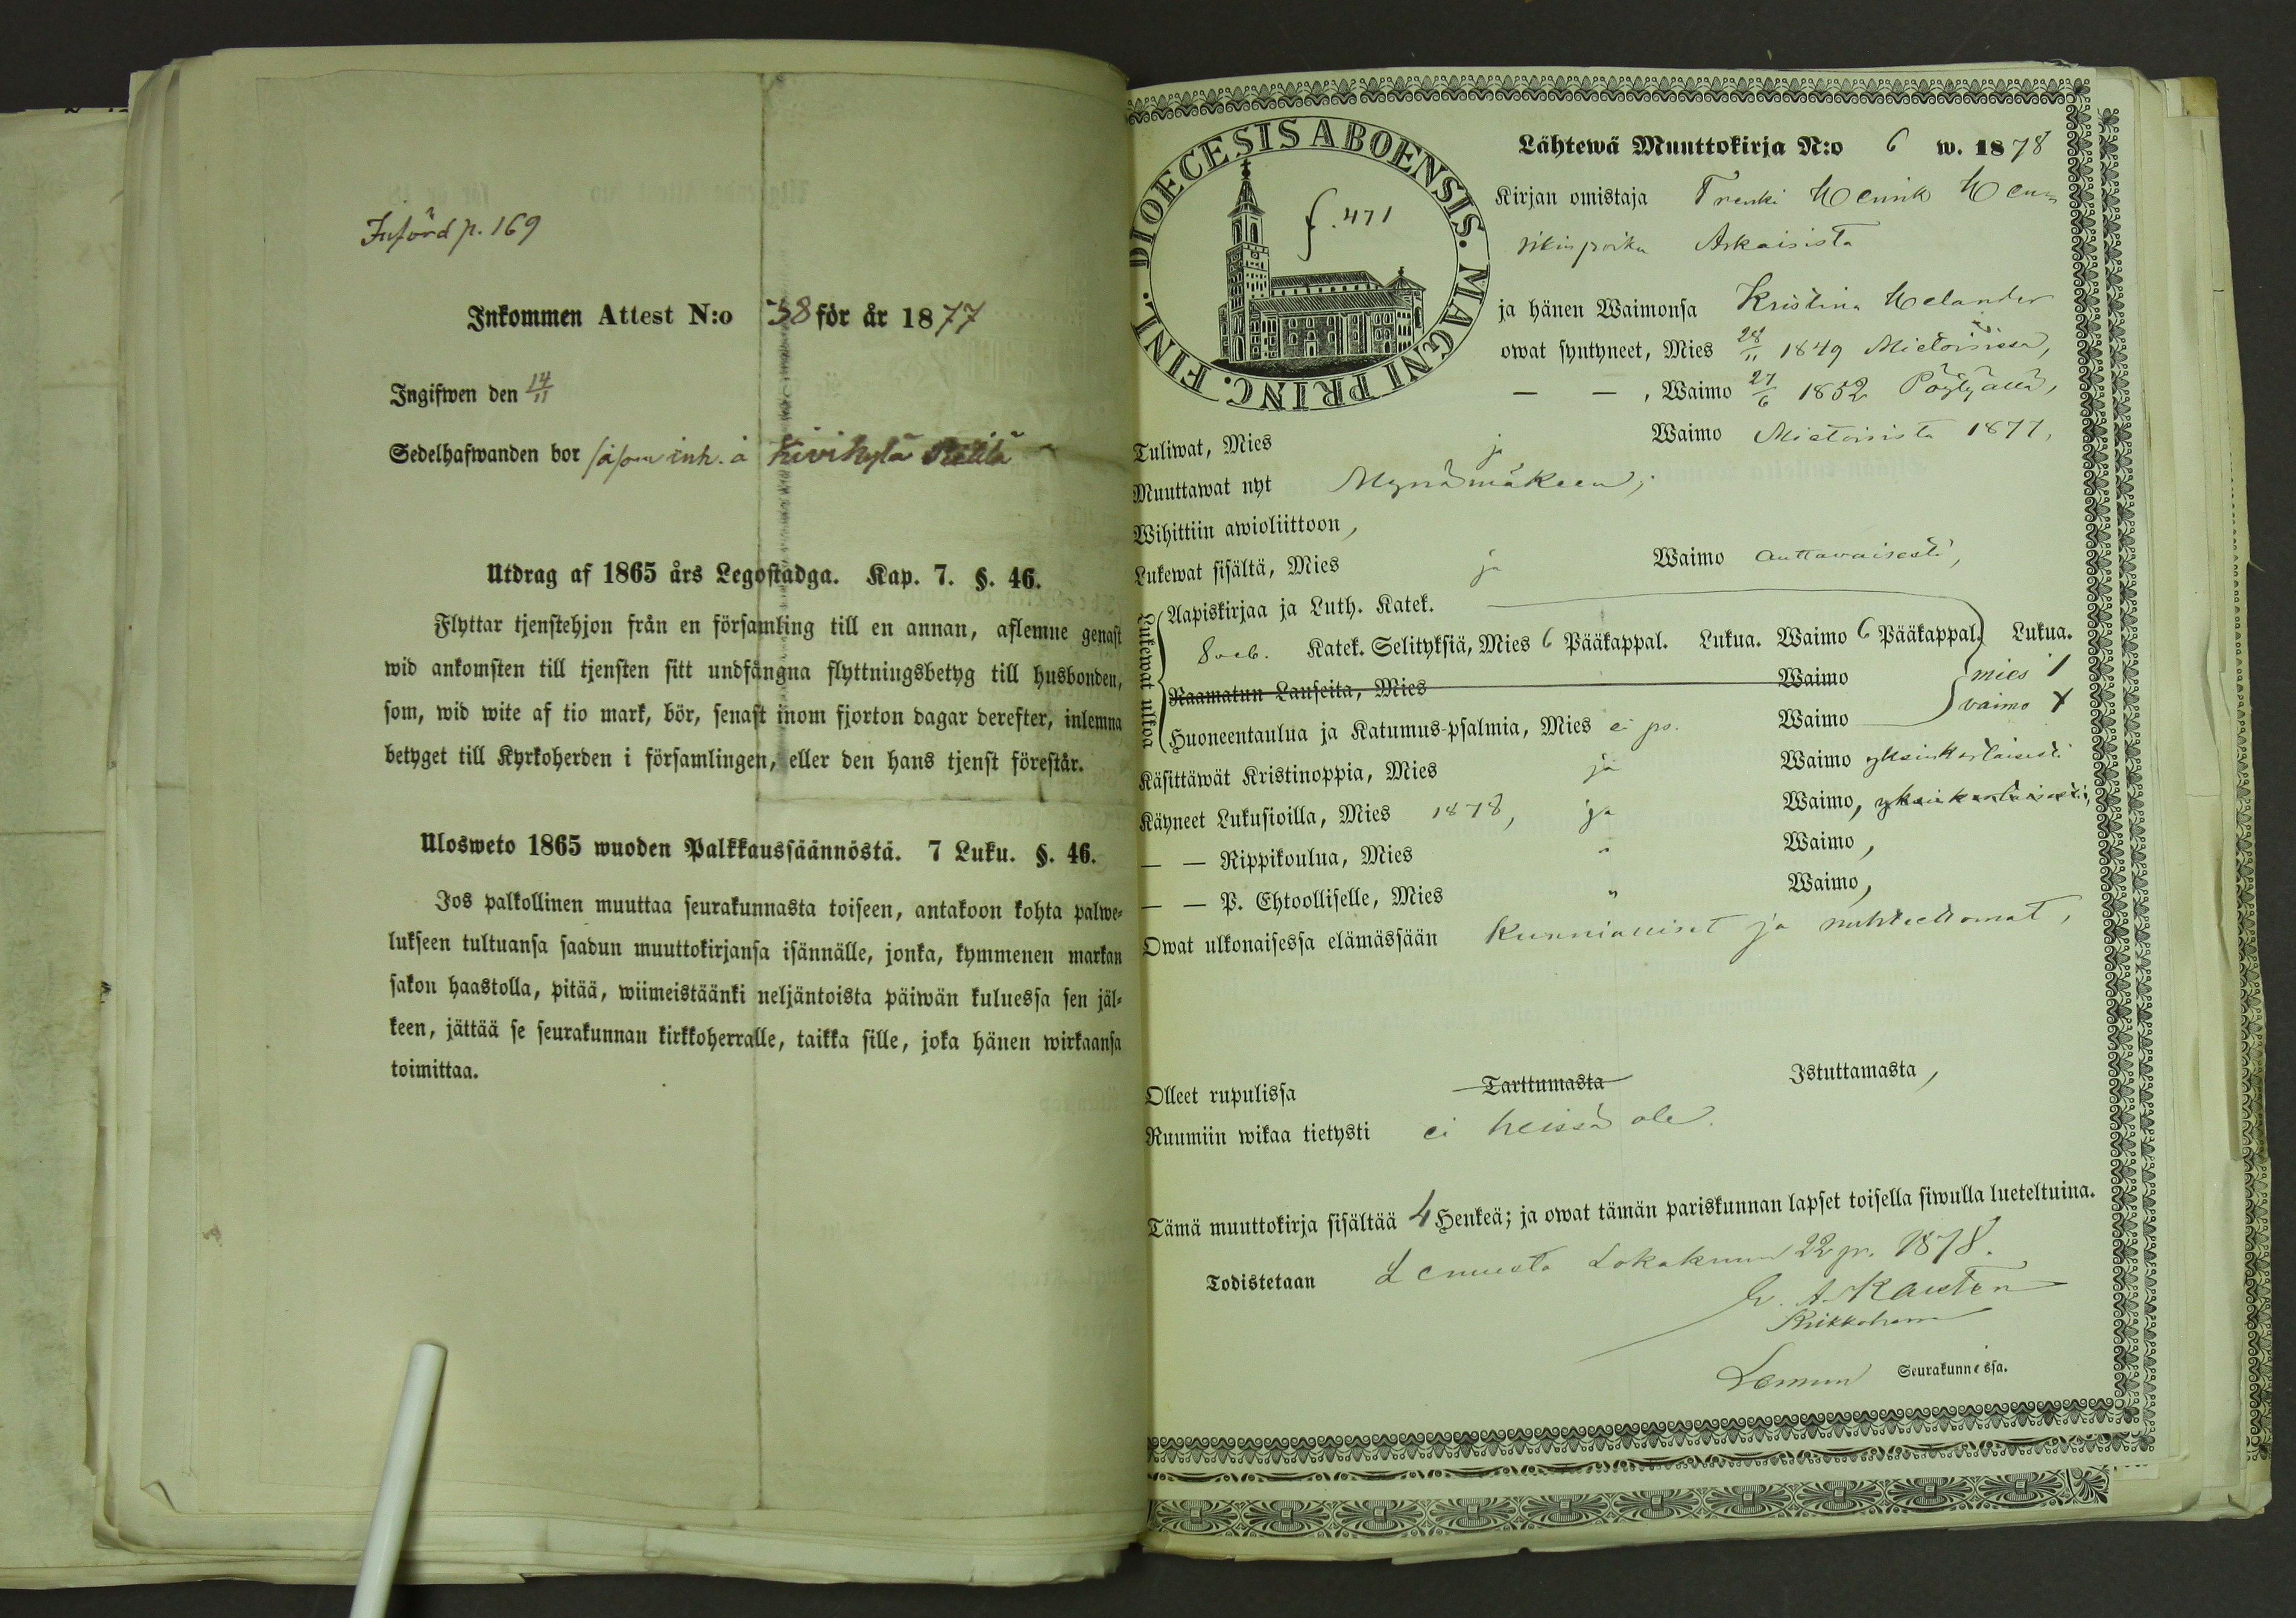 Införd p. 169
Inkommen Attest N:o 38 för år 1877
Ingifwen den 14/11
Sedelhafwanden bor såsom inh. å Kivikylä
Utdrag af 1865 års Legostadga. Kap. 7. §. 46.
Flyttar tjenstehjon från en församling till en annan, aflemne genast
wid ankomsten till tjensten sitt undfångna flyttningsbetyg till husbonden,
som, wid wite af tio mark, bör, senast inom fjorton dagar derefter, inlemna
betyget till Kyrkoherden i församlingen, eller den hans tjenst förestår.
Ulosweto 1865 wuoden Palkkaussäännöstä. 7 Luku. §. 46.
Jos palkollinen muuttaa seurakunnasta toiseen, antakoon kohta palwe-
lukseen tultuansa saadun muuttokirjansa isännälle, jonka, kymmenen markan
sakon haastolla, pitää, wiimeistäänki neljäntoista päiwän kuluessa sen jäl-
keen, jättää se seurakunnan kirkkoherralle, taikka sille, joka hänen wirkaansa
toimittaa.
DIOECESIS ABOENSIS. MAGNI PRINC. FINL.
f. 471
Lähtewä Muuttokirja N:o 6 w. 1878
Kirjan omistaja Trenki Henrik Hen-
rikinpoika Askaisista
ja hänen Waimonsa Kristina Helander
owat syntyneet, Mies 28/11 1849 Mietoisissa,
— — , Waimo 27/6 1852 Pöytyällä,
Tuliwat, Mies ja Waimo Mietoisista 1877,
Muuttawat nyt Mynämäkeen,
Wihittiin awioliittoon,
Lukewat sisältä, Mies ja Waimo auttavaisesti,
Lukewat ulkoa
Aapiskirjaa ja Luth. Katek.
Katek. Selityksiä, Mies 6 Pääkappal. Lukua. Waimo 6 Pääkappal. Lukua.
Raamatun Lauseita, Mies Waimo mies 1
Huoneentaulua ja Katumus-psalmia, Mies ei ps. Waimo vaimo
Käsittäwät Kristinoppia, Mies ja Waimo yksinkertaisesti
Käyneet Lukusioilla, Mies 1878, ja Waimo, yksinkertaisesti,
— — Rippikoulua, Mies " Waimo,
— — P. Ehtoolliselle, Mies " Waimo,
Owat ulkonaisessa elämässään kunnialliset ja nuhteettomat,
Olleet rupulissa Tarttumasta Istuttamasta,
Ruumiin wikaa tietysti ei heissä ole.
Tämä muuttokirja sisältää 4 Henkeä; ja owat tämän pariskunnan lapset toisella siwulla lueteltuina.
Todistetaan Lemusta Lokakuun 22 p. 1878.
A. Karsten
Kirkkoherra
Lemun Seurakunnassa.